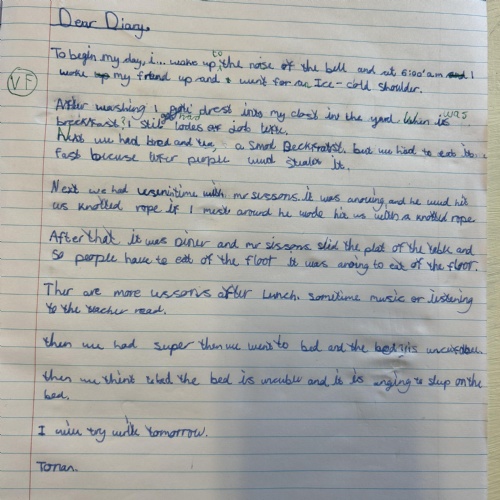 Dear Diary,
To begin my day, i... wake up to the noise of the bell and at 6:00 am I
woke my friend up and went for an Ice-cold shoulder.
VF
After washing I get drest into my clost in the yard. When is was
breckfast? I still had lodes of Jobs
Next we had bred and tea, a small Beckfrast. but we had to eat it
fast because other people wud it.
Next we had with mr sissons it was anoing and he wud hit
us knotted rope if I muss around he wode hit us with a knotted rope
After that it was Diner and mr sissons slid the plat of the table and
so people have to eat of the floor it was anoing to eat of the floor.
Ther are more lessons after lunch. sometime music or listening
to the teacher read.
then we had super then we went to bed and the bed is
then we the bed is and it is anging to slep on the
bed.
I will try write tomorrow.